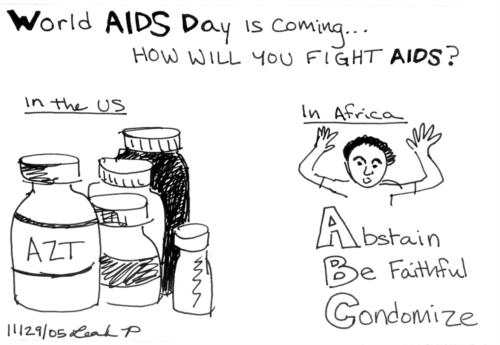 World AIDS Day is coming...
HOW WILL YOU FIGHT AIDS?
In the US
In Africa
AZT
Abstain
Be Faithful
Condomize
11/29/05 Leah P